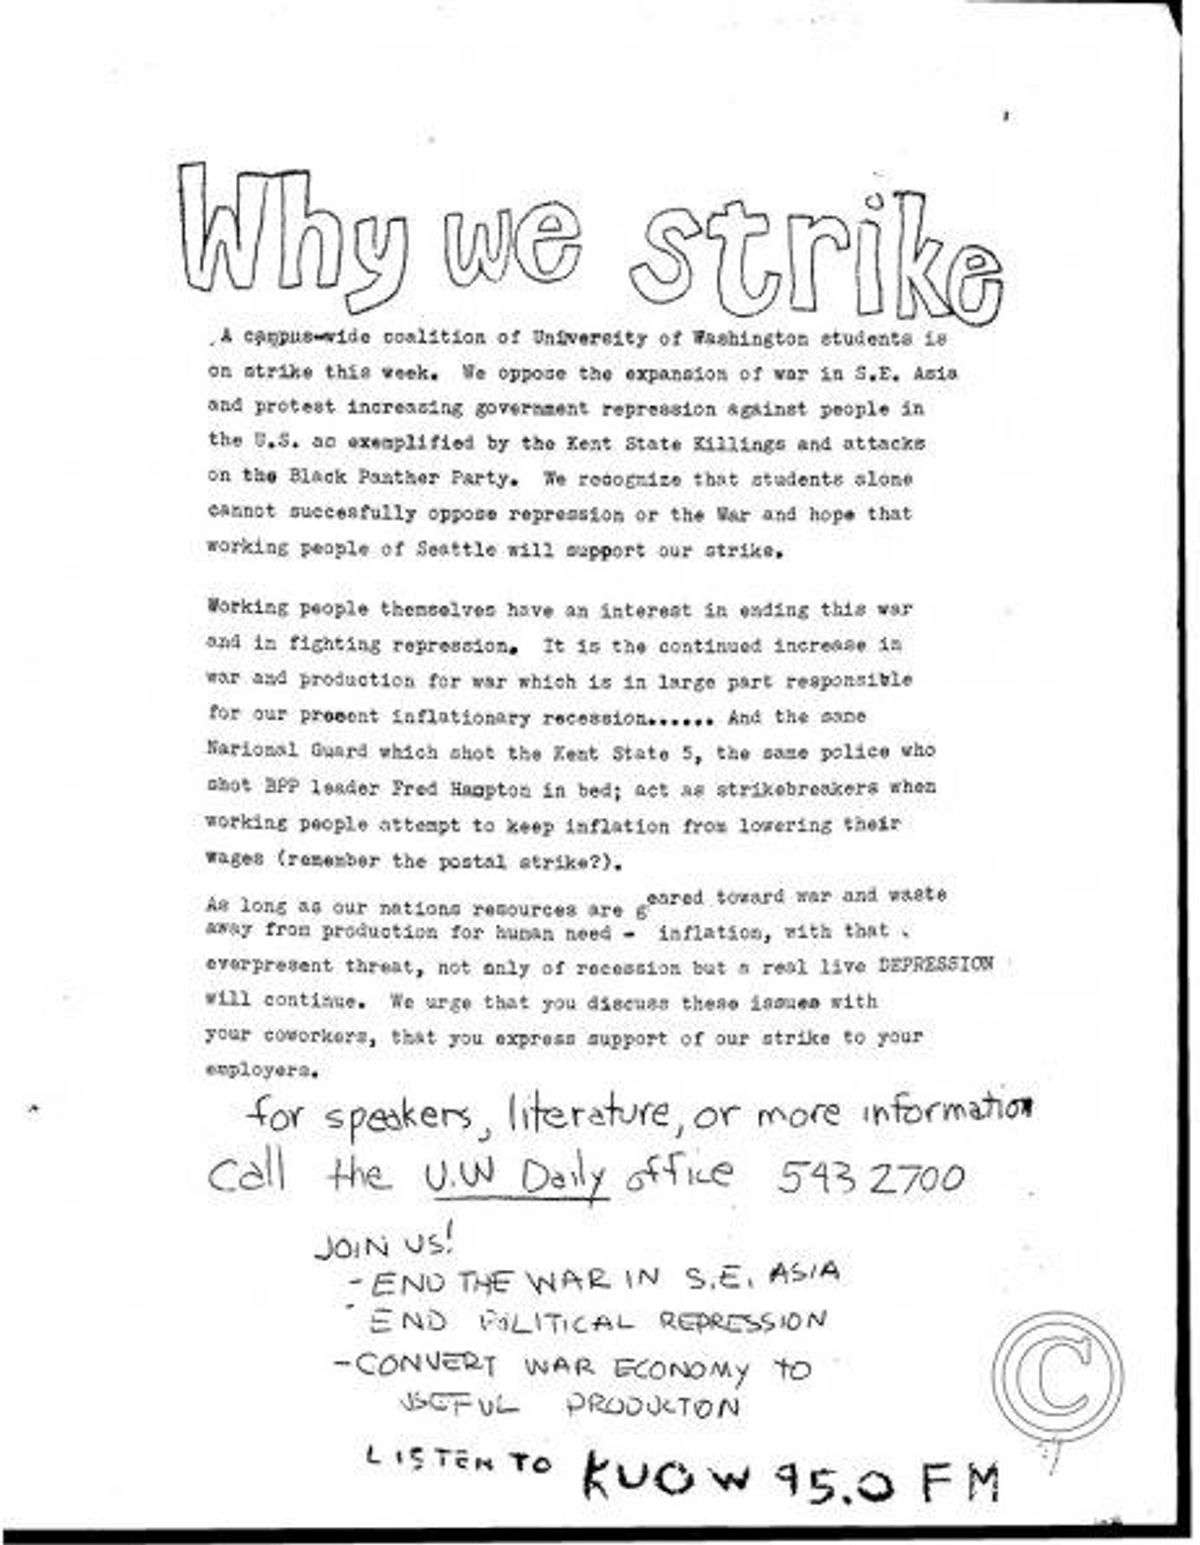 Why we strike
A campus-wide coalition of University of Washington students is
on strike this week. We oppose the expansion of war in S.E. Asia
and protest increasing government repression against people in
the U.S. as exemplified by the Kent State Killings and attacks
on the Black Panther Party. We recognize that students alone
cannot succesfully oppose repression or the War and hope that
working people of Seattle will support our strike.
Working people themselves have an interest in ending this war
and in fighting repression. It is the continued increase in
war and production for war which is in large part responsible
for our present inflationary recession...... And the same
Narional Guard which shot the Kent State 5, the same police who
shot BPP leader Fred Hampton in bed; act as strikebreakers when
working people attempt to keep inflation from lowering their
wages (remember the postal strike?).
As long as our nations resources are geared toward war and waste
away from production for human need - inflation, with that
everpresent threat, not only of recession but a real live DEPRESSION
will continue. We urge that you discuss these issues with
your coworkers, that you express support of our strike to your
employers.
for speakers, literature, or more information
Call the U.W Daily office 543 2700
JOIN US!
- END THE WAR IN S.E. ASIA
- END POLITICAL REPRESSION
- CONVERT WAR ECONOMY TO
USEFUL PRODUCTON
LISTEN TO KUOW 95.0 FM
©